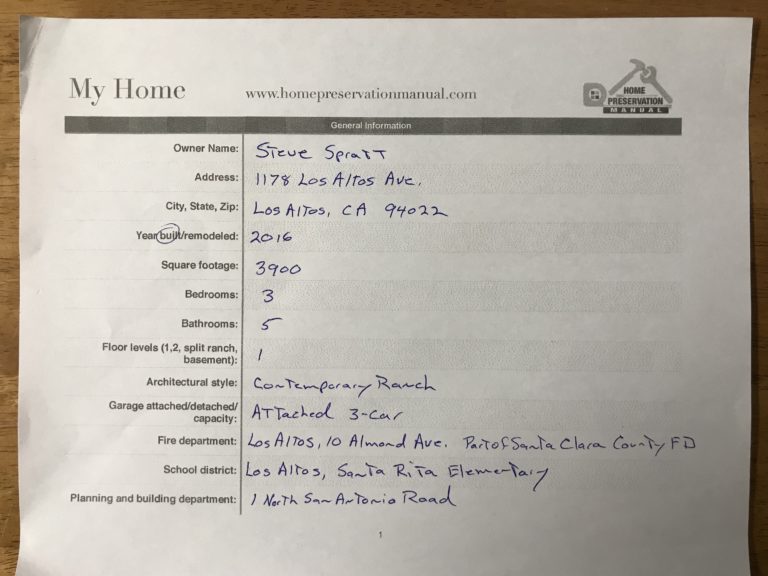 My Home www.homepreservationmanual.com
HOME
PRESERVATION
MANUAL
General Information
Owner Name: Steve Spratt
Address: 1178 Los Altos Ave.
City, State, Zip: Los Altos, CA 94022
Year built/remodeled: 2016
Square footage: 3900
Bedrooms: 3
Bathrooms: 5
Floor levels (1,2, split ranch,
basement): 1
Architectural style: Contemporary Ranch
Garage attached/detached/
capacity: Attached 3-car
Fire department: Los Altos, 10 Almond Ave. Part of Santa Clara County FD
School district: Los Altos, Santa Rita Elementary
Planning and building department: 1 North San Antonio Road
1